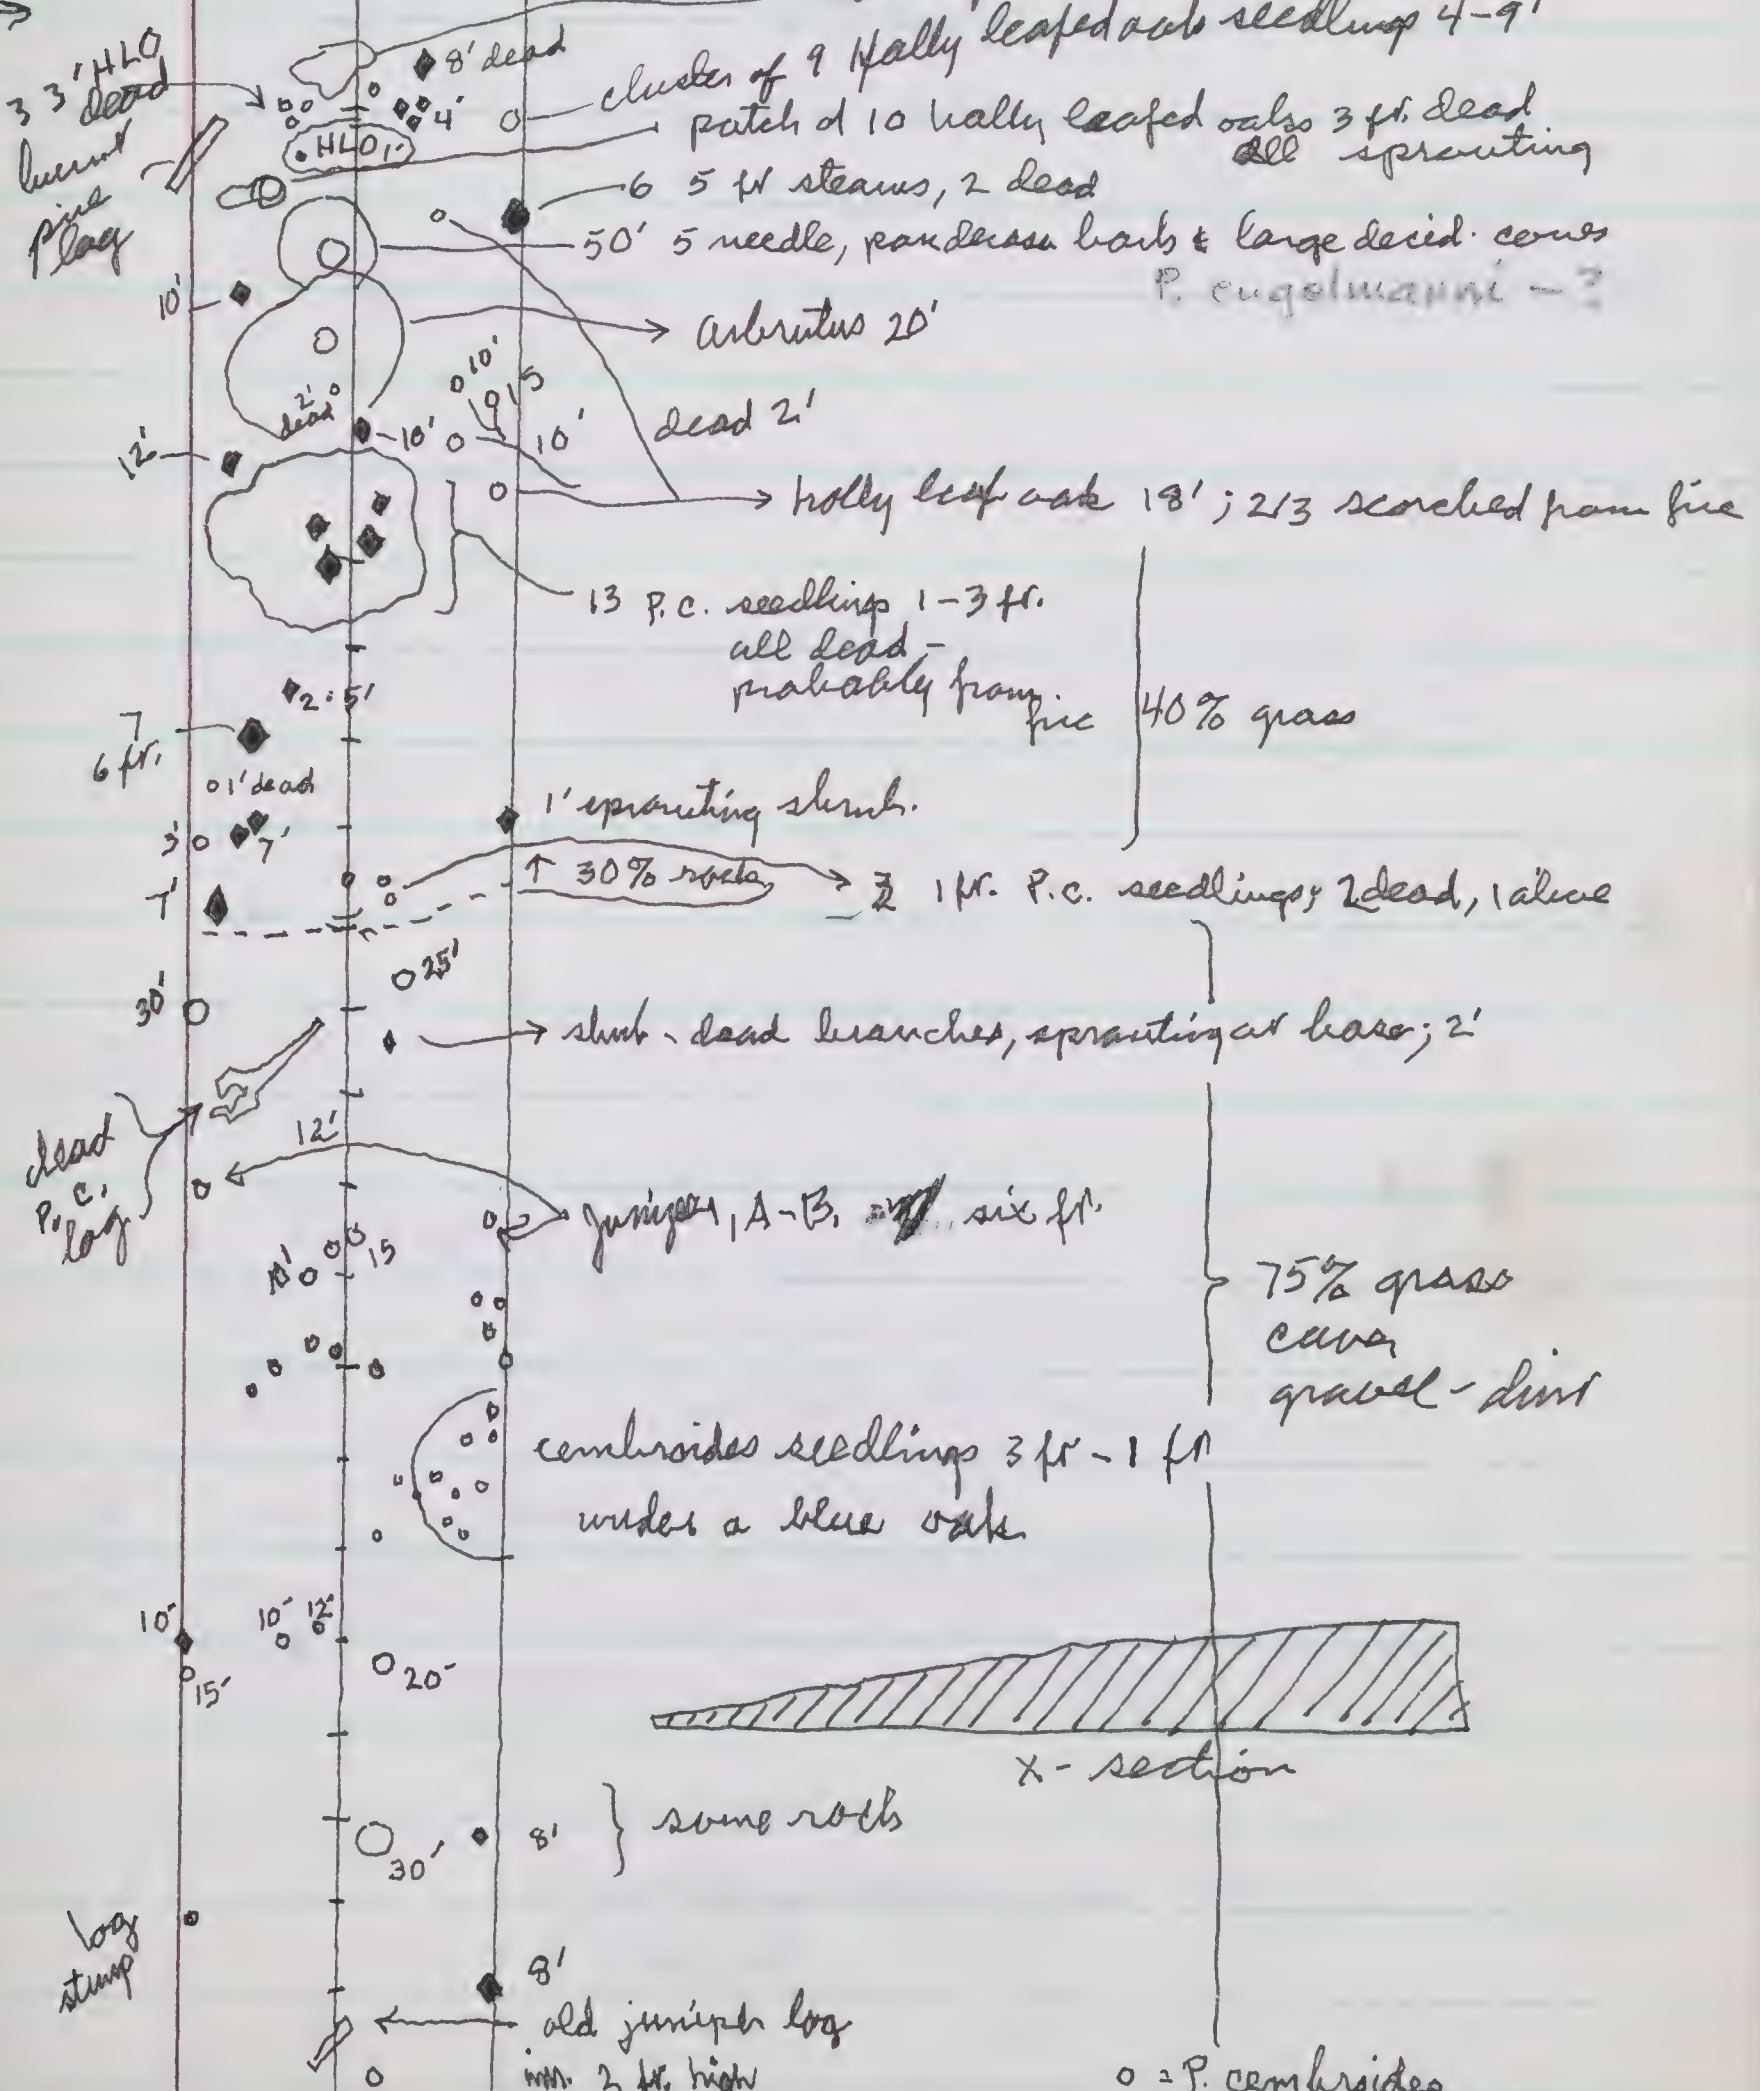 cluster of 9 Holly leafed oak seedlings 4-9'
3 3' HLO
dead
8' dead
4'
patch of 10 holly leafed oaks 3 ft. dead
all sprouting
HLO 1'
burnt
pine
log
6 5 ft steams, 2 dead
50' 5 needle, ponderosa bark & large decid. cones
P. engelmanni - ?
10'
Arbrutus 20'
10'
15
2'
dead
10'
10'
dead 2'
12'
holly leaf oak 18'; 2/3 scorched from fire
13 P.C. seedlings 1-3 ft.
all dead -
probably from
fire
40% grass
2.5'
7
6 ft.
1' dead
1' sprouting shrub.
3'
7'
↑ 30% rock
7'
1 ft. P.C. seedlings; 2 dead, 1 alive
25'
30'
shrub - dead branches, sprouting at base; 2'
dead
P.C.
log
12'
junipers, A-B, six ft.
15
10'
75% grass
cover
gravel - dirt
cembroides seedlings 3 ft - 1 ft
under a blue oak
10'
10'
12'
20'
15'
X-section
some rock
30'
8'
log
stump
8'
old juniper log
2 ft. high
o = P. cembroides